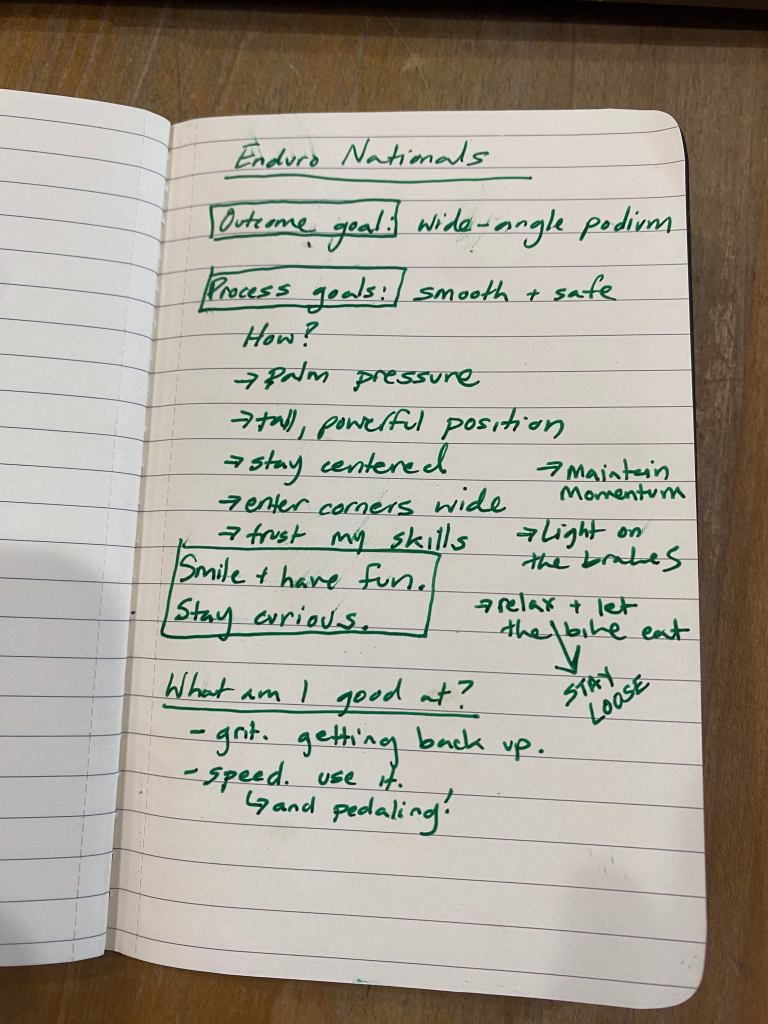 Enduro Nationals
Outcome goal: wide-angle podium
Process goals: smooth + safe
How?
→ palm pressure
→ tall, powerful position
→ stay centered
→ enter corners wide
→ trust my skills
→ Maintain
Momentum
→ Light on
the brakes
→ relax + let
the bike eat
STAY
LOOSE
Smile + have fun.
Stay curious.
What am I good at?
- grit. getting back up.
- speed. use it.
↳ and pedaling!